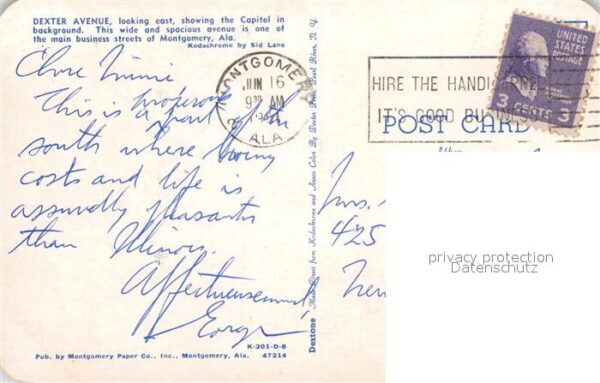 DEXTER AVENUE, looking east, showing the Capitol in
background. This wide and spacious avenue is one of
the main business streets of Montgomery, Ala.
Kodachrome by Sid Lane
This is
a part of the
south where living
costs and life is
assuredly pleasanter
than Illinois.
Affectueusement,
K-201-D-8
Pub. by Montgomery Paper Co., Inc., Montgomery, Ala. 47214
Dextone Made Direct from Kodachrome and Ansco Color By Dexter Press, Pearl River, N. Y.
MONTGOMERY
JUN 16
9 30 AM
2 ALA
HIRE THE HANDICAPPED
IT'S GOOD BUSINESS
UNITED
STATES
POSTAGE
3 CENTS 3
POST CARD
Mrs.
425
privacy protection
Datenschutz